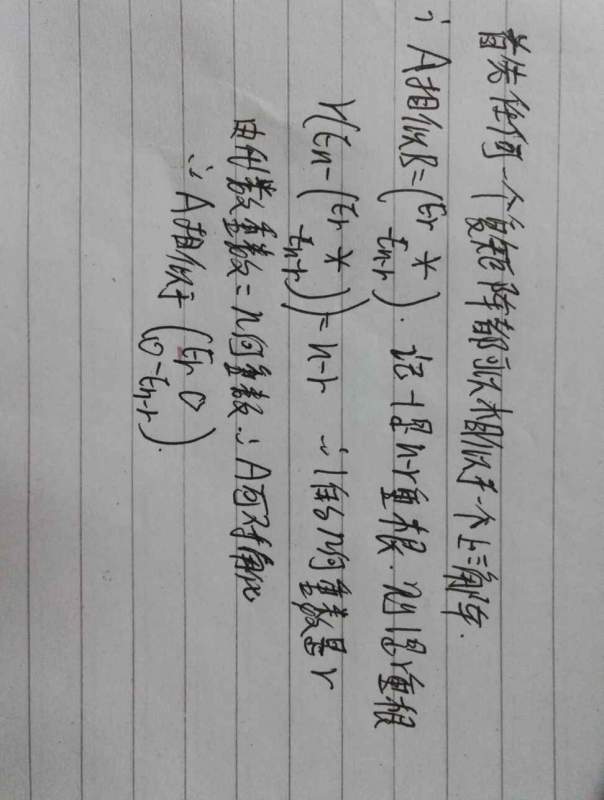 首先任何一个复矩阵都可以相似于一个上三角阵.
∴ A相似B=(Er * -En-r). 记-1是n-r重根. 则1是r重根
r(En-(Er * -En-r))=n-r ∴1的几何重数是r
由代数重数=几何重数∴A可对角化
∴ A相似于(Er 0 0 -En-r).